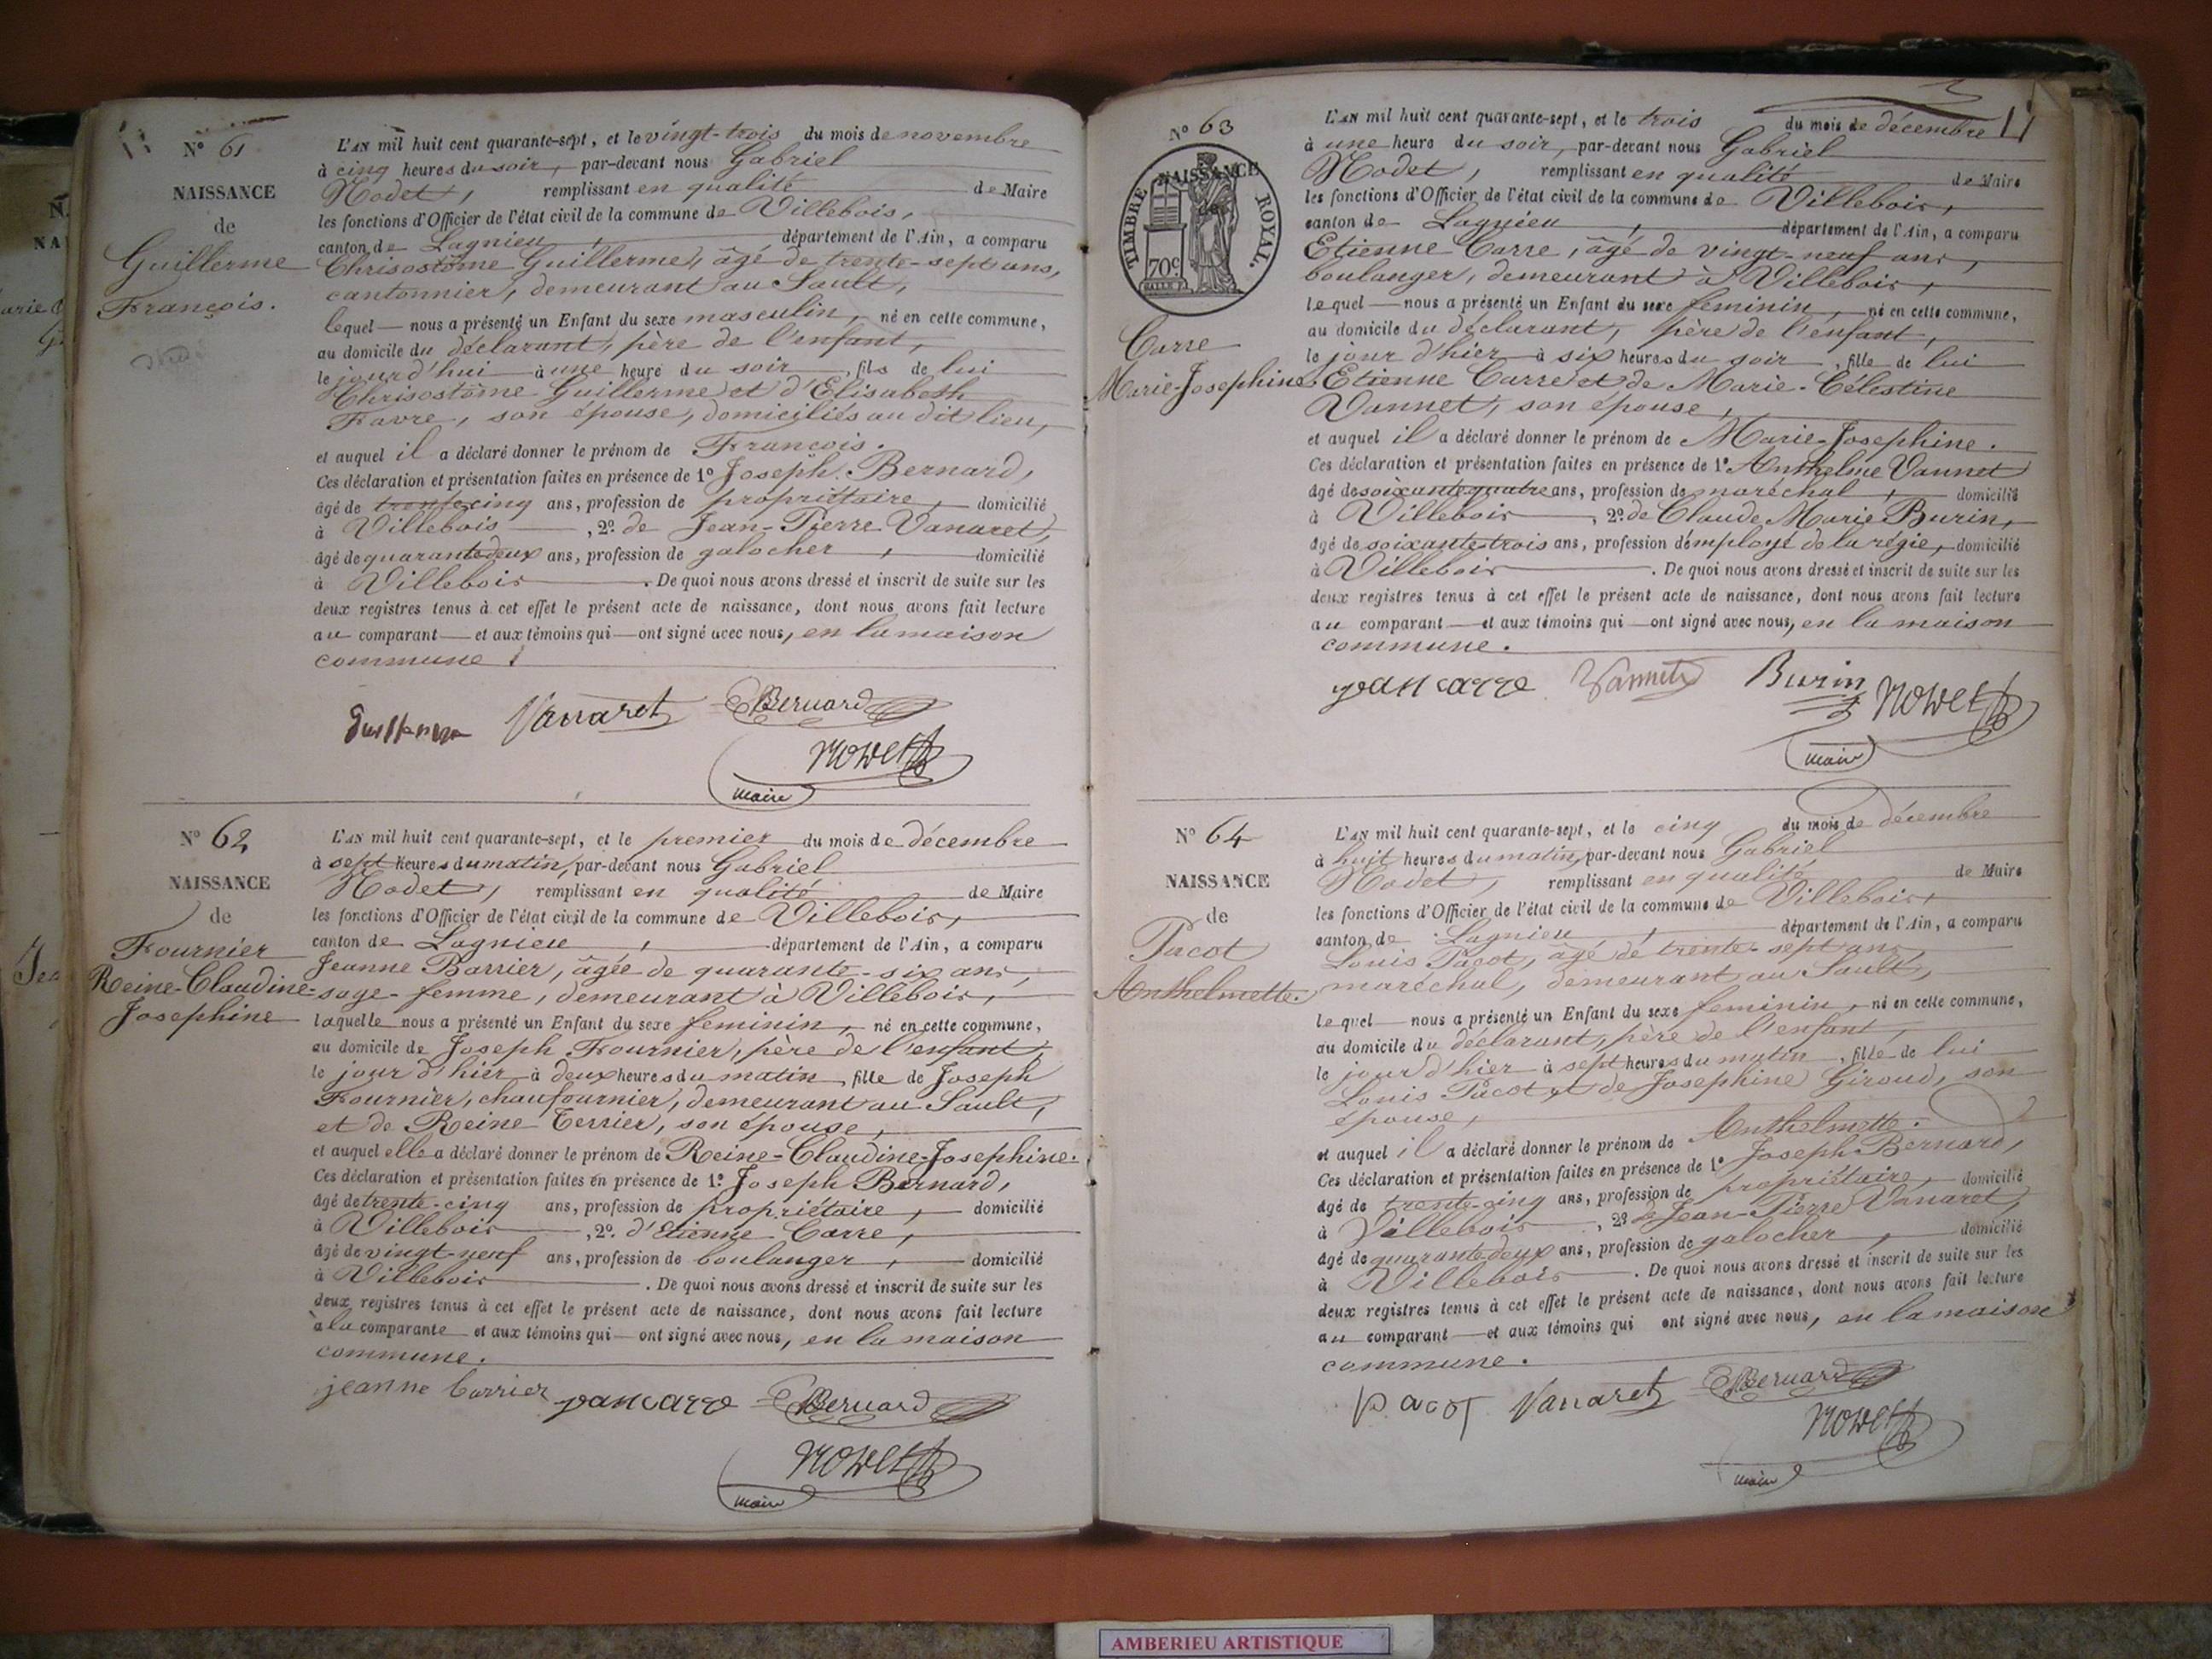 Nº 61
NAISSANCE
de
Guillerme
François.
L'AN mil huit cent quarante-sept, et le vingt-trois du mois de novembre
à cinq heures du soir, par-devant nous Gabriel
Nodet, remplissant en qualité de Maire
les fonctions d'Officier de l'état civil de la commune de Villebois,
canton de Lagnieu, département de l'Ain, a comparu
Chrisostôme Guillerme, âgé de trente-sept ans,
cantonnier, demeurant au Sault,
lequel nous a présenté un Enfant du sexe masculin, né en cette commune,
au domicile du déclarant, père de l'enfant,
le jourd'hui à une heure du soir, fils de lui
Chrisostôme Guillerme et d'Elisabeth
Favre, son épouse, domiciliés au dit lieu,
et auquel il a déclaré donner le prénom de François.
Ces déclaration et présentation faites en présence de 1º Joseph Bernard,
âgé de trente cinq ans, profession de propriétaire, domicilié
à Villebois, 2º de Jean-Pierre Vanaret,
âgé de quarante deux ans, profession de galocher, domicilié
à Villebois. De quoi nous avons dressé et inscrit de suite sur les
deux registres tenus à cet effet le présent acte de naissance, dont nous avons fait lecture
au comparant et aux témoins qui ont signé avec nous, en la maison
commune.
Guillerme Vanaret Bernard
Nodet
maire
Nº 62
NAISSANCE
de
Fournier
Reine-Claudine-
Josephine
L'AN mil huit cent quarante-sept, et le premier du mois de décembre
à sept heures du matin, par-devant nous Gabriel
Nodet, remplissant en qualité de Maire
les fonctions d'Officier de l'état civil de la commune de Villebois,
canton de Lagnieu, département de l'Ain, a comparu
Jeanne Barrier, âgée de quarante-six ans,
sage-femme, demeurant à Villebois,
laquelle nous a présenté un Enfant du sexe feminin, né en cette commune,
au domicile de Joseph Fournier, père de l'enfant,
le jour d'hier à deux heures du matin, fille de Joseph
Fournier, chaufournier, demeurant au Sault,
et de Reine Terrier, son épouse,
et auquel elle a déclaré donner le prénom de Reine-Claudine-Josephine.
Ces déclaration et présentation faites en présence de 1º Joseph Bernard,
âgé de trente-cinq ans, profession de propriétaire, domicilié
à Villebois, 2º d'Etienne Carre,
âgé de vingt-neuf ans, profession de boulanger, domicilié
à Villebois. De quoi nous avons dressé et inscrit de suite sur les
deux registres tenus à cet effet le présent acte de naissance, dont nous avons fait lecture
à la comparante et aux témoins qui ont signé avec nous, en la maison
commune.
jeanne barrier jean carre Bernard
Nodet
maire
Nº 63
NAISSANCE
de
TIMBRE ROYAL.
70c
Carre
Marie-Josephine.
L'AN mil huit cent quarante-sept, et le trois du mois de décembre
à une heure du soir, par-devant nous Gabriel
Nodet, remplissant en qualité de Maire
les fonctions d'Officier de l'état civil de la commune de Villebois,
canton de Lagnieu, département de l'Ain, a comparu
Etienne Carre, âgé de vingt-neuf ans,
boulanger, demeurant à Villebois,
lequel nous a présenté un Enfant du sexe feminin, né en cette commune,
au domicile du déclarant, père de l'enfant,
le jour d'hier à six heures du soir, fille de lui
Etienne Carre et de Marie-Célestine
Vannet, son épouse,
et auquel il a déclaré donner le prénom de Marie-Josephine.
Ces déclaration et présentation faites en présence de 1º Anthelme Vannet
âgé de soixante quatre ans, profession de maréchal, domicilié
à Villebois, 2º de Claude Marie Burin,
âgé de soixante trois ans, profession d'employé de la régie, domicilié
à Villebois. De quoi nous avons dressé et inscrit de suite sur les
deux registres tenus à cet effet le présent acte de naissance, dont nous avons fait lecture
au comparant et aux témoins qui ont signé avec nous, en la maison
commune.
jean carre Vannet Burin Nodet
maire
Nº 64
NAISSANCE
de
Pacot
Anthelmette.
L'AN mil huit cent quarante-sept, et le cinq du mois de décembre
à huit heures du matin, par-devant nous Gabriel
Nodet, remplissant en qualité de Maire
les fonctions d'Officier de l'état civil de la commune de Villebois,
canton de Lagnieu, département de l'Ain, a comparu
Louis Pacot, âgé de trente-sept ans,
maréchal, demeurant au Sault,
lequel nous a présenté un Enfant du sexe feminin, né en cette commune,
au domicile du déclarant, père de l'enfant,
le jour d'hier à sept heures du matin, fille de lui
Louis Pacot et de Josephine Giroud, son
épouse,
et auquel il a déclaré donner le prénom de Anthelmette.
Ces déclaration et présentation faites en présence de 1º Joseph Bernard,
âgé de trente-cinq ans, profession de propriétaire, domicilié
à Villebois, 2º de Jean-Pierre Vanaret,
âgé de quarante deux ans, profession de galocher, domicilié
à Villebois. De quoi nous avons dressé et inscrit de suite sur les
deux registres tenus à cet effet le présent acte de naissance, dont nous avons fait lecture
au comparant et aux témoins qui ont signé avec nous, en la maison
commune.
pacot Vanaret Bernard
Nodet
maire
AMBERIEU ARTISTIQUE